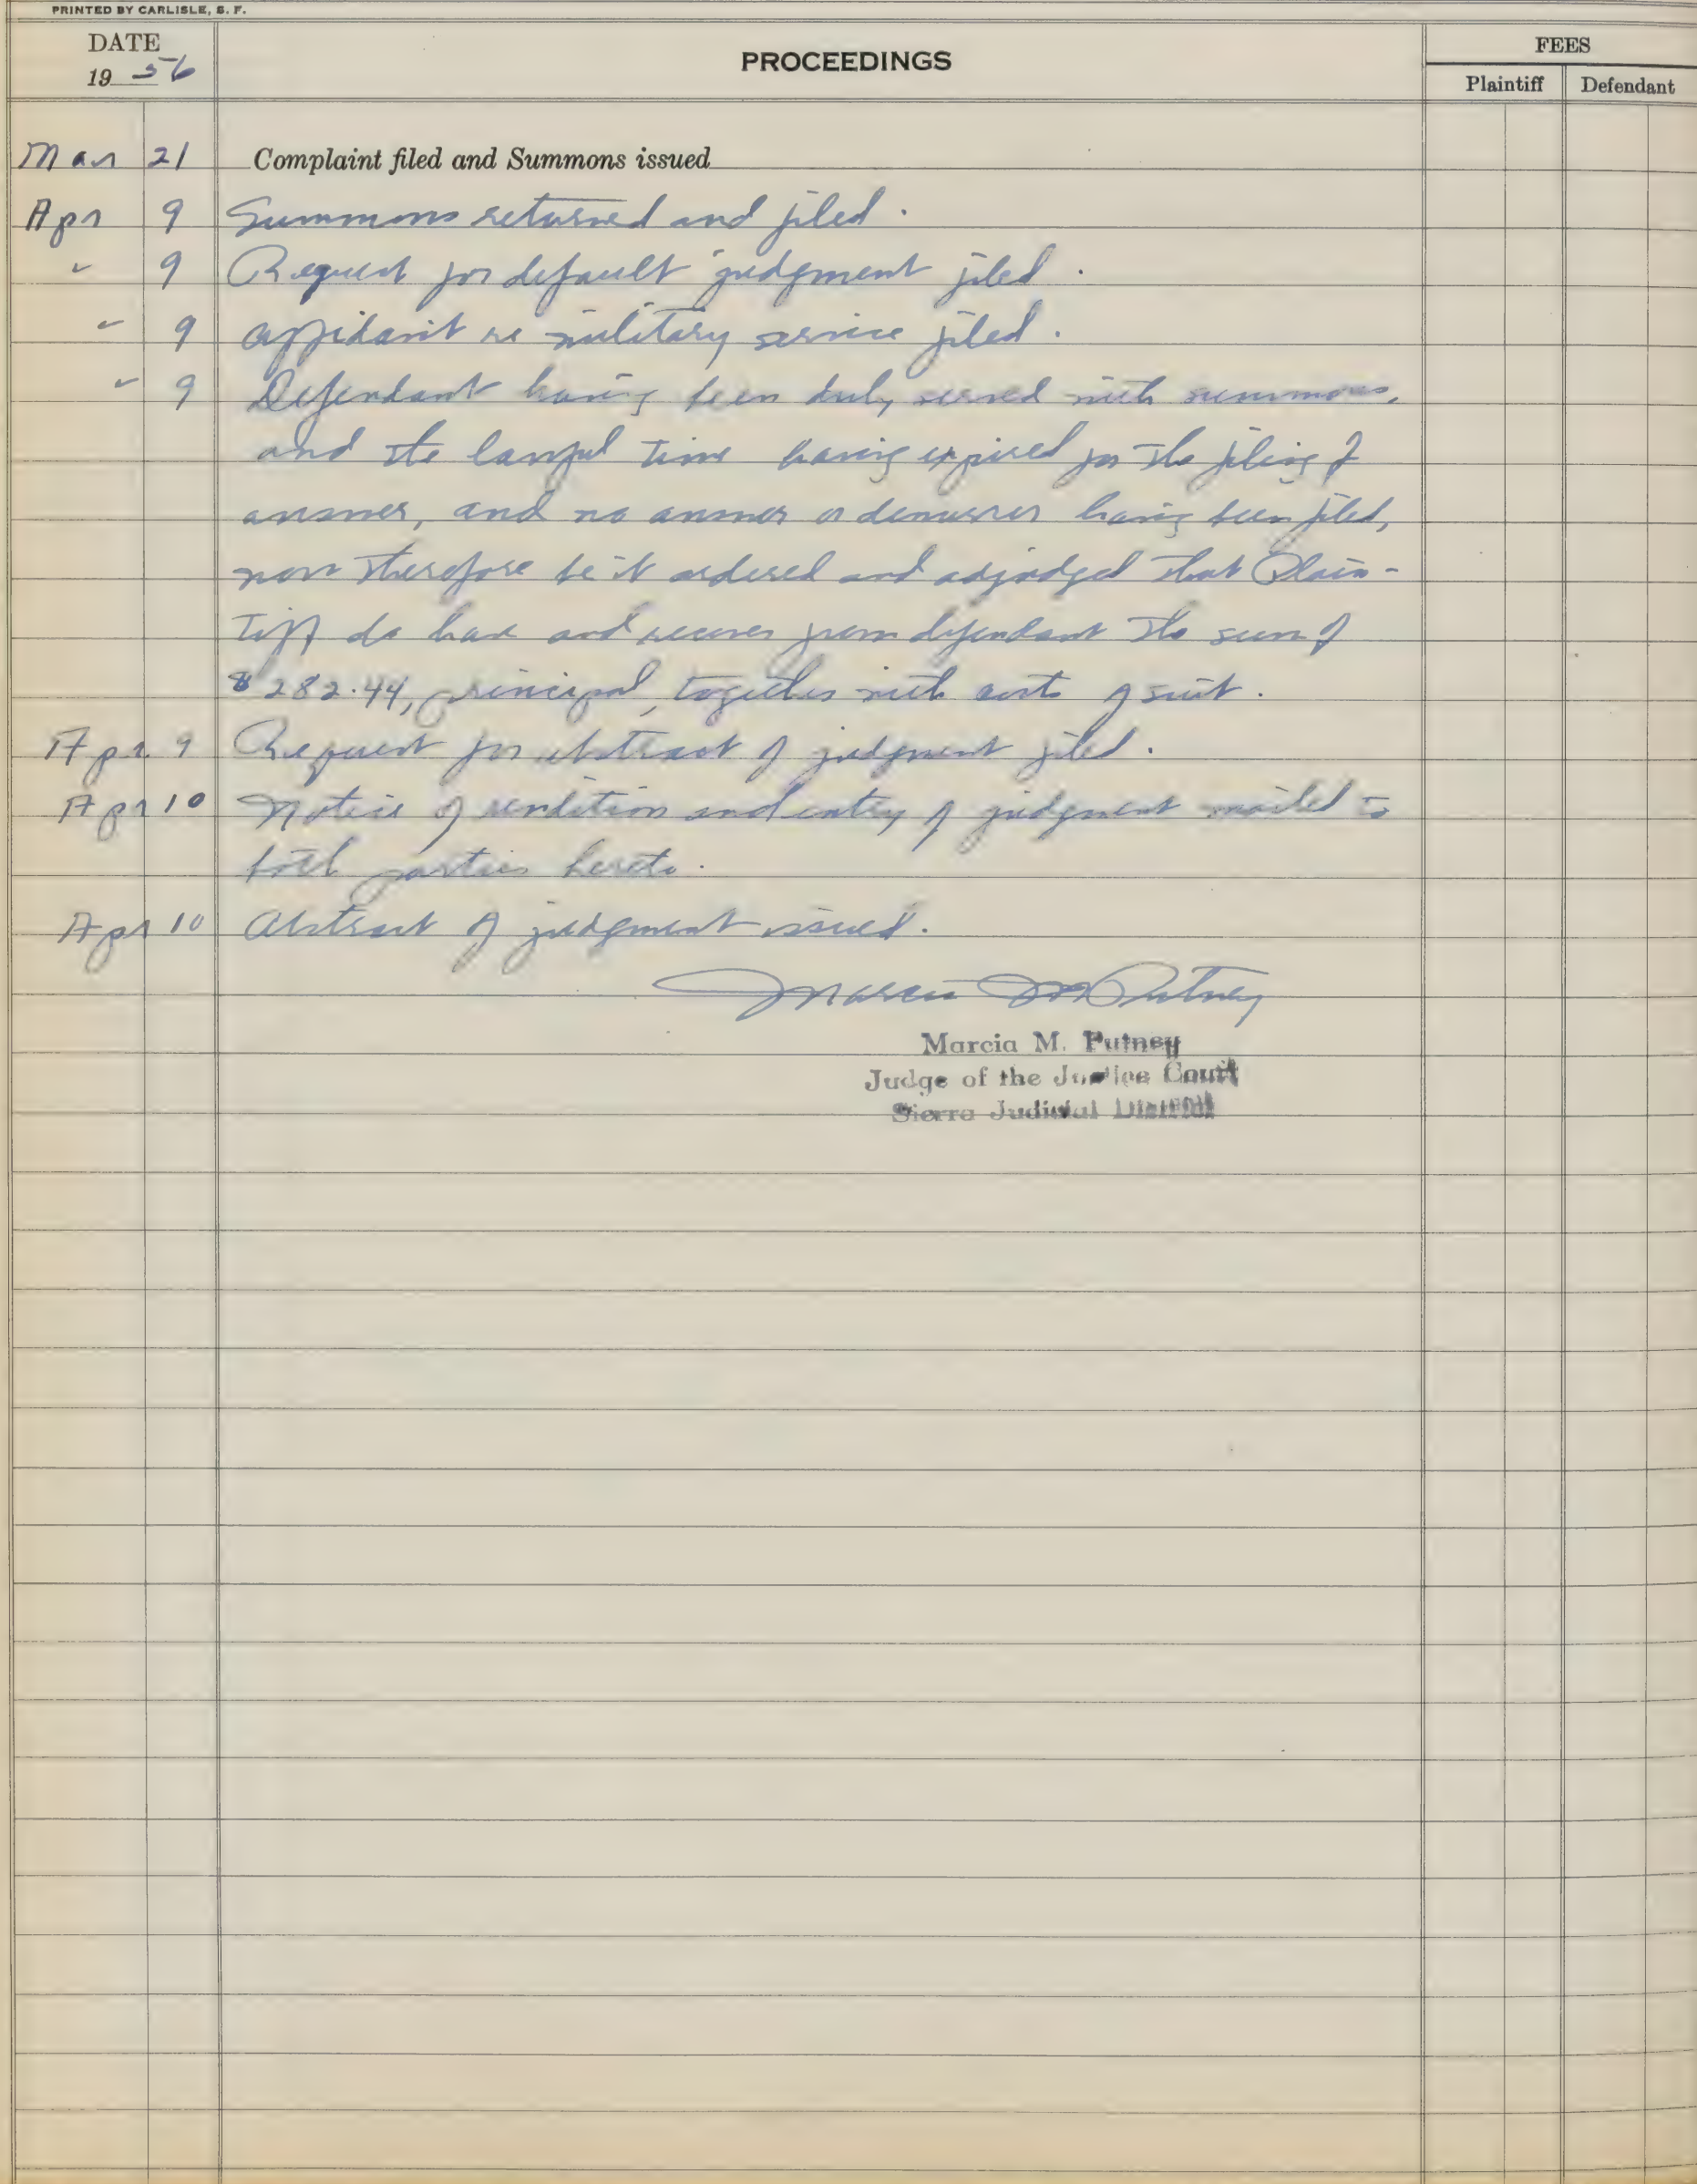 PRINTED BY CARLISLE, S. F.
DATE PROCEEDINGS FEES
19 56 Plaintiff Defendant
Mar 21 Complaint filed and Summons issued
Apr 9 Summons returned and filed.
" 9 Request for default judgment filed.
" 9 Affidavit re military service filed.
" 9 Defendant having been duly served with summons,
and the lawful time having expired for the filing of
answer, and no answer or demurrer having been filed,
now therefore be it ordered and adjudged that Plain-
tiff do have and recover from defendant the sum of
$282.44, principal, together with costs of suit.
Apr 9 Request for abstract of judgment filed.
Apr 10 Notice of rendition and entry of judgment mailed to
both parties hereto.
Apr 10 Abstract of judgment issued.
Marcia M Putney
Marcia M. Putney
Judge of the Justice Court
Sierra Judicial District